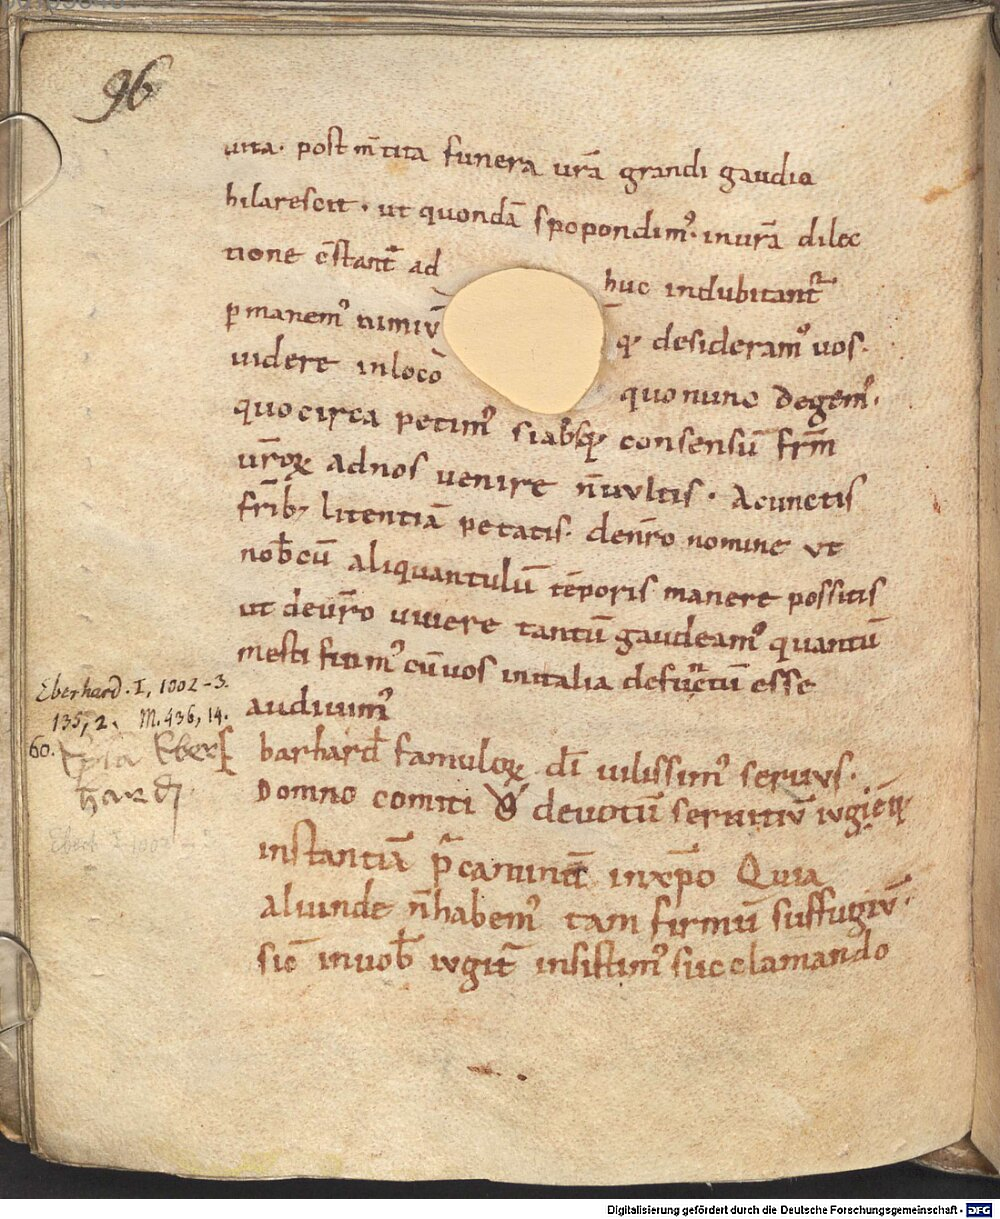 96
uita · post m̄tita funera urā grandi gaudio
hilarescit · ut quondā spopondim᷒ · inurā dilec
tione c̄stant᷑ ad huc indubitant᷑
ꝑmanem᷒ nimiū qꝫ desideram᷒ uos ·
uidere inloco quo nunc degem᷒ ·
quo circa petim᷒ si absqꝫ consensū fr̄m
ur̄oꝝ adnos uenire n̄uultis · Acunctis
fr̄ibꝫ licentiā petatis · denr̄o nomine ut
nob̄cū aliquantulū tēporis manere possitis
ut deur̄o uiuere tantū gaudeam᷒ quantū
mesti fuim᷒ cū uos initalia defūctū esse
audiuim᷒
Eberhard. I, 1002-3.
135, 2. M. 436, 14.
60.
Ep̄la Eber
hardi
Eberh I 1002-3
barhard̄ famuloꝝ dī uilissim᷒ seruus ·
Domno comiti deuotū seruitiū iugiēqꝫ
instantiā p̄caminū inxp̄o Quia
aliunde n̄habem᷒ tam firmū suffugiū ·
sic inuob̄ iugit᷑ insistim᷒ succlamando
Digitalisierung gefördert durch die Deutsche Forschungsgemeinschaft - DFG